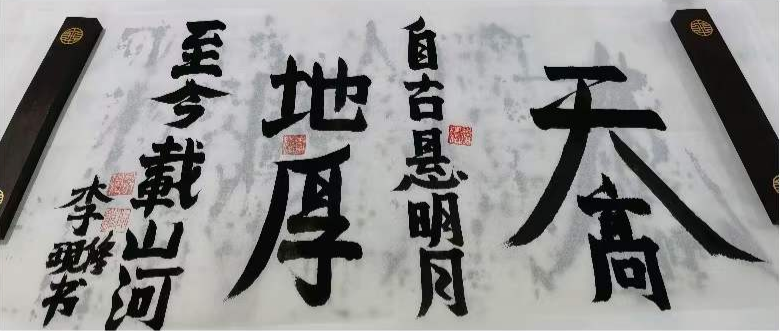 天高
自古悬明月
地厚
至今载山河
李
现书